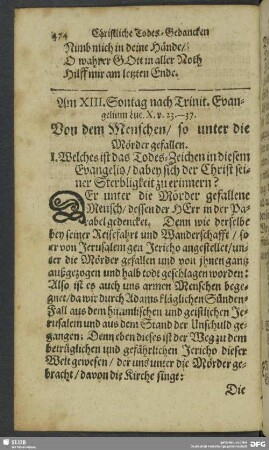 474 Christliche Todes-Gedancken
Nimb mich in deine Hände/
O wahrer GOtt in aller Noth
Hilff mir am letzten Ende.
Am XIII. Sontag nach Trinit. Evan-
gelium Luc. X. v. 23.—37.
Von dem Menschen / so unter die
Mörder gefallen.
I. Welches ist das Todes-Zeichen in diesem
Evangelio / dabey sich der Christ sei-
ner Sterbligkeit zu erinnern?
Er unter die Mörder gefallene
Mensch / dessen der HErr in der Pa-
rabel gedencket. Denn wie derselbe
bey seiner Reisefahrt und Wanderschafft / so
er von Jerusalem gen Jericho angestellet / un-
ter die Mörder gefallen und von jhnen gantz
außgezogen und halb todt geschlagen worden:
Also ist es auch uns armen Menschen bege-
gnet / da wir durch Adams kläglichen Sünden-
Fall aus dem himmlischen und geistlichen Je-
rusalem und aus dem Stand der Unschuld ge-
gangen: Denn eben dieses ist der Weg zu dem
betrüglichen und gefährlichen Jericho dieser
Welt gewesen / der uns unter die Mörder ge-
bracht / davon die Kirche singt:
Die
SLUB
DFG